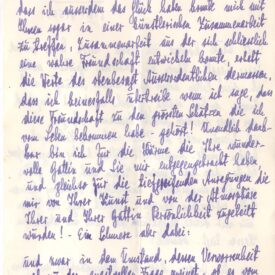 dass ich ausserdem das Glück haben konnte mich mit
Ihnen sogar in einer künstlerischen Zusammenarbeit
zu treffen, Zusammenarbeit aus der sich schliesslich
eine wahre Freundschaft entwickeln konnte, erhöht
die Werte des obenbesagt Ausserordentlichen dermassen,
dass ich keinesfalls übertreibe wenn ich sage, dass
diese Freundschaft zu den grössten Schätzen die ich
vom Leben bekommen habe - gehört! Unendlich dank-
bar bin ich für die Wärme die Ihre wunder-
volle Gattin und Sie mir entgegengebracht haben
und gleichso für die tiefgreifenden Anregungen die
mir von Ihrer Kunst und von der Atmosphäre
Ihrer und Ihrer Gattin Persönlichkeit zugeteilt
wurden! - Ein Schmerz aber dabei:
und zwar in dem Umstand, dessen Verworrenheit